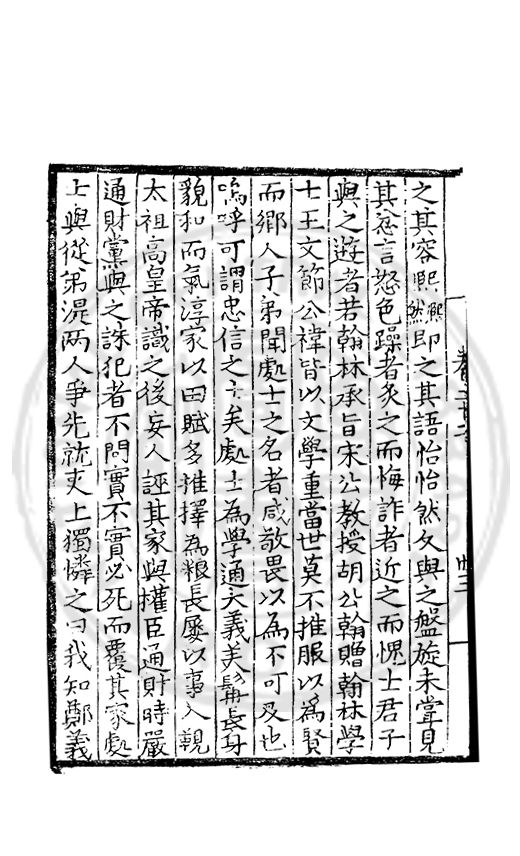 之其容熙熙然即之其語怡怡然久與之盤旋未嘗見
其忿言怒色躁者炙之而悔詐者近之而愧士君子
與之遊者若翰林承旨宋公教授胡公翰贈翰林學
士王文節公禕皆以文學重當世莫不推服以為賢
而鄉人子弟聞處士之名者咸敬畏以為不可及也
嗚呼可謂忠信之士矣處士為學通大義美鬚長身
貌和而氣淳家以田賦多推擇為粮長屡以事入覲
太祖高皇帝識之後妄人誣其家與權臣通財時嚴
通財黨與之誅犯者不問實不實必死而覆其家處
士與從弟湜两人爭先就吏上獨憐之曰我知鄭義